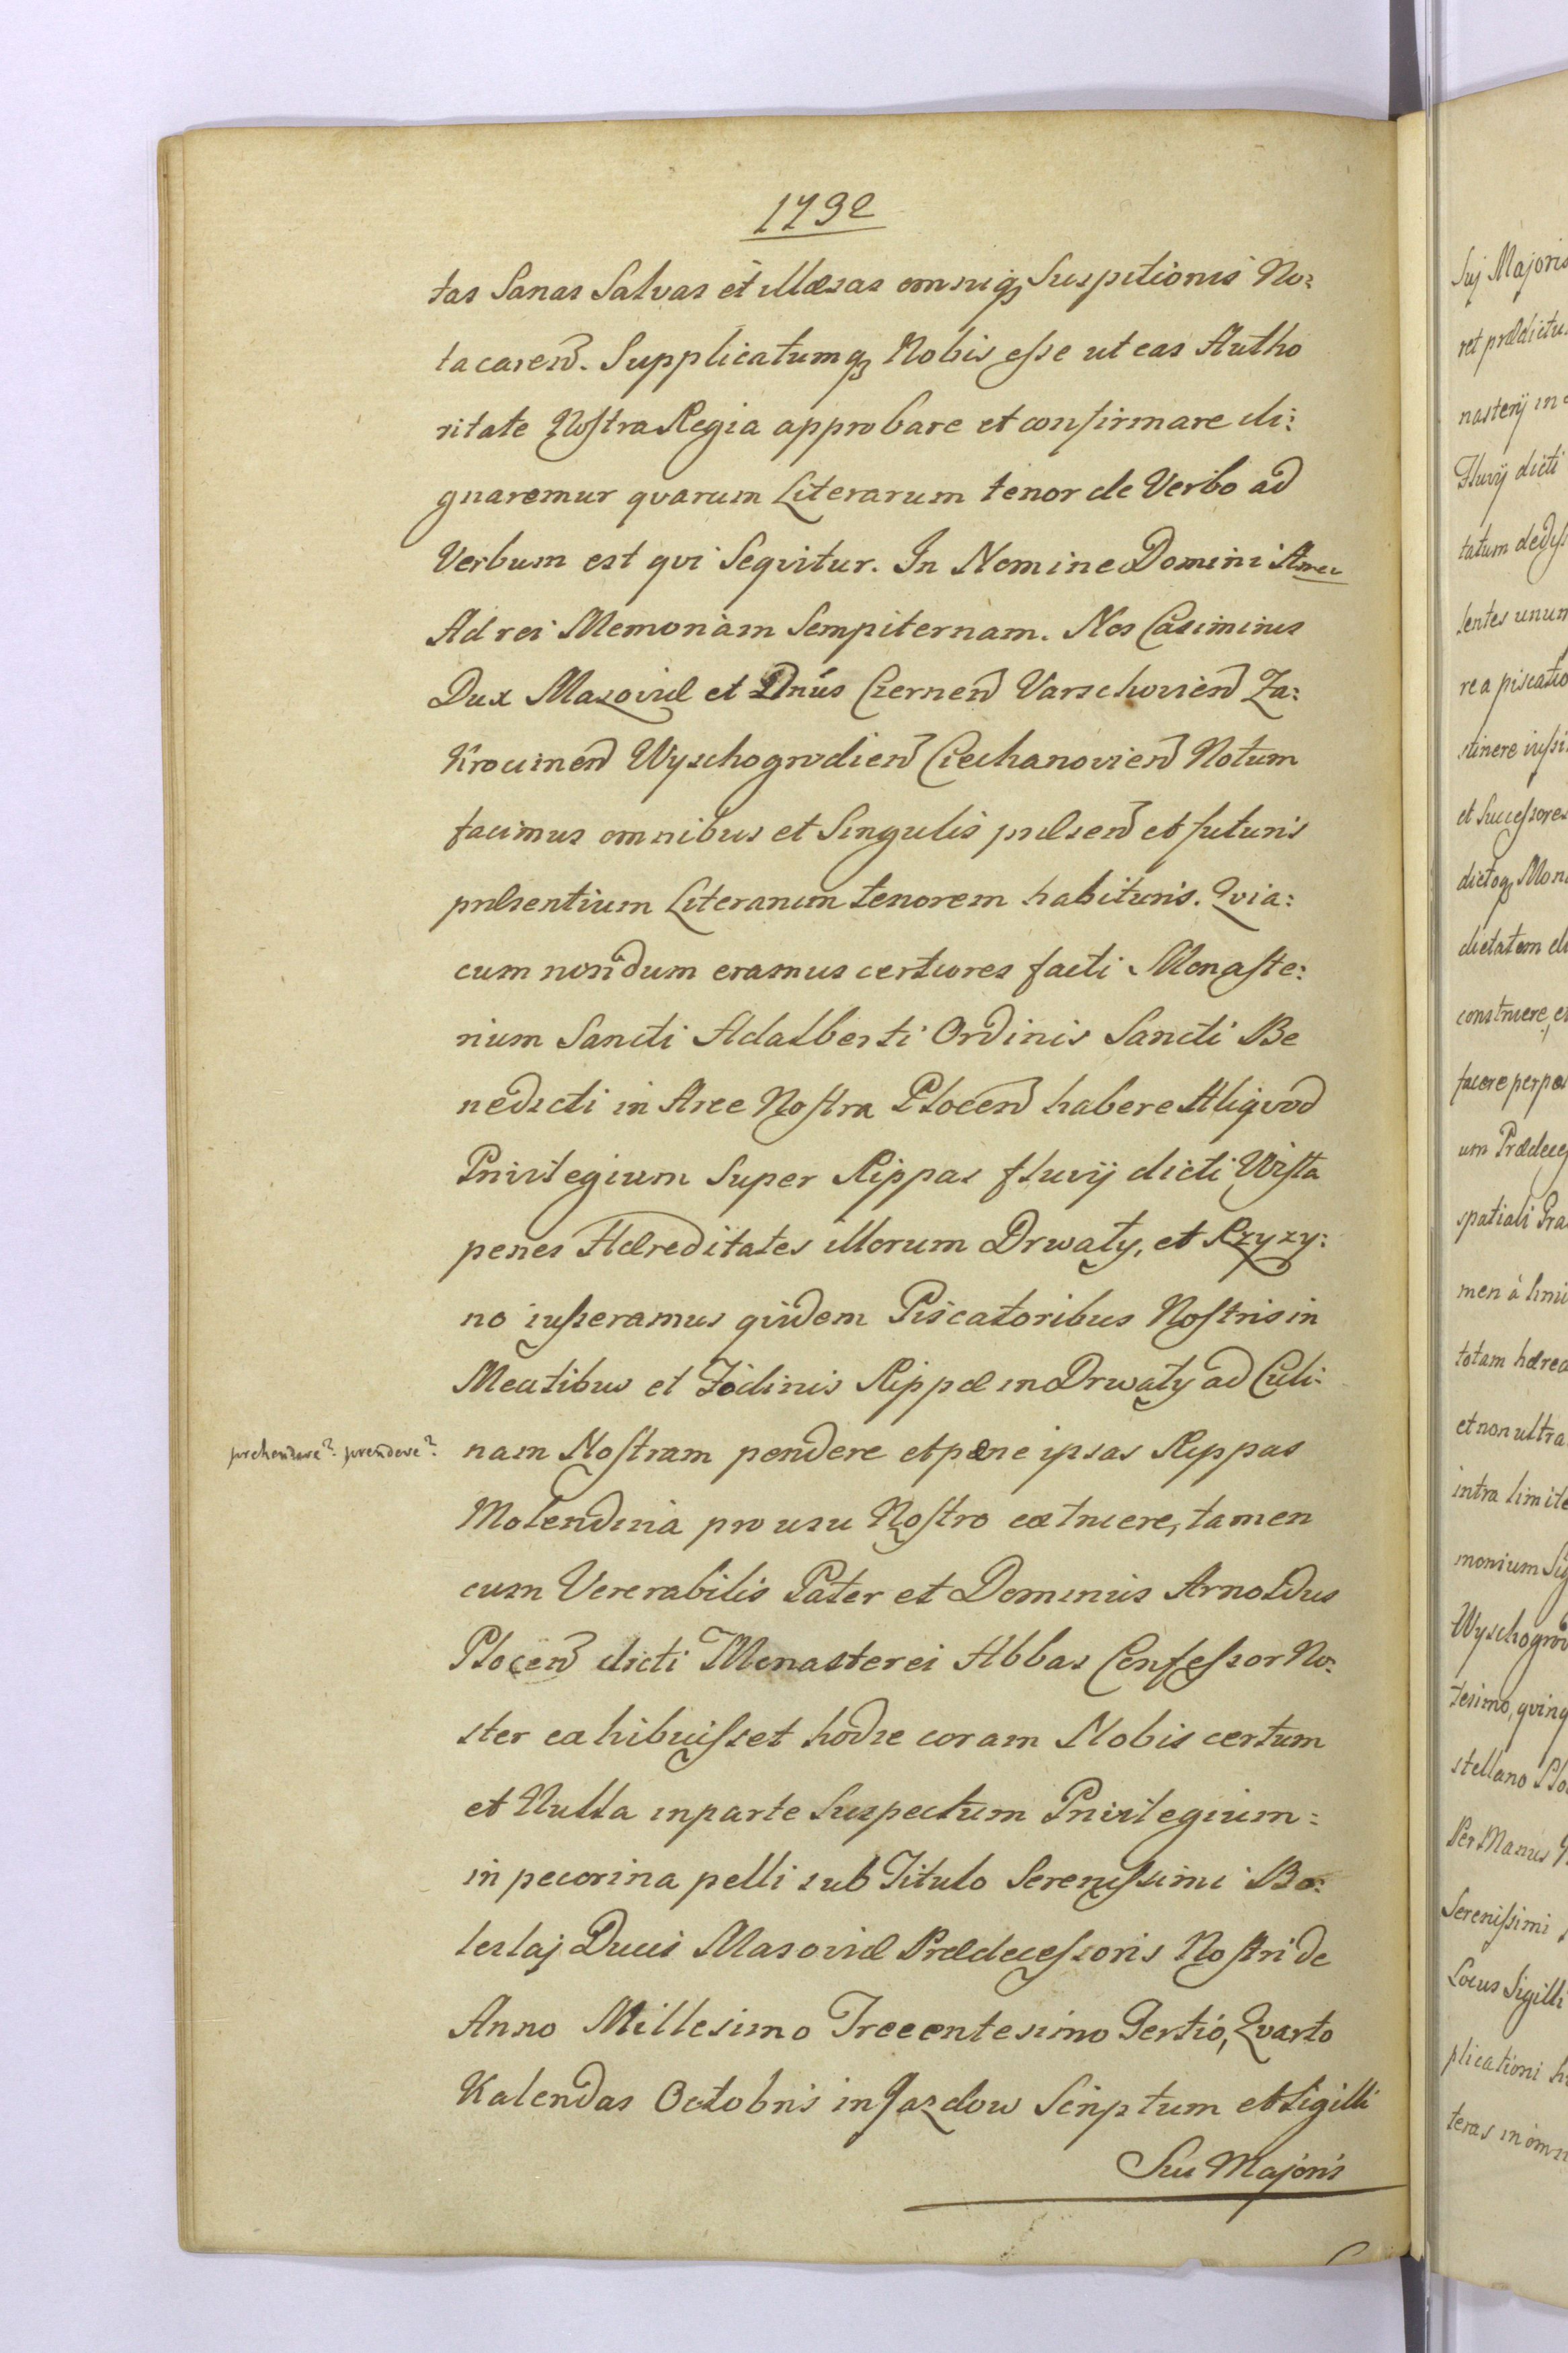 1732
tas Sanas Salvas et illæsas omniq3 Suspitionis No:
ta caren̄. Supplicatumq3 Nobis esse ut eas Autho
ritate Nostra Regia approbare et confirmare di:
gnaremur qvarum Literarum tenor de Verbo ad
Verbum est qvi Seqvitur. In Nomine Domini Amen
Ad rei Memoriam Sempiternam. Nos Casimirus
Dux Masoviæ et Dnus Czernen̄ Varschovien̄ Za:
Krocimen̄ Wyschogrodien̄ Ciechanovien̄ Notum
facimus omnibus et Singulis præsen̄ et futuris
præsentium Literarum tenorem habituris. Qvia:
cum nondum eramus certiores facti Monaste:
rium Sancti Adalberti Ordinis Sancti Be
nedicti in Arce Nostra Plocen̄ habere Aliqvod
Privilegium Super Rippas fluvij dicti Wisla
penes Hæreditates illorum Drwaly, et Rzyzy:
no iusseramus qvidem Piscatoribus Nostris in
Meatibus et Fodinis Rippæ in Drwaly ad Culi-
prehendere? prendere? nam Nostram pendere et pene ipsas Rippas
Molendina pro usu Nostro extruere, tamen
cum Venerabilis Pater et Dominus Arnoldus
Plocen̄ dicti Monasterei Abbas Confessor No:
ster exhibuisset hodie coram Nobis certum
et Nulla in parte Suspectum Privilegium:
in pecorina pelli sub Titulo Serenissimi Bo:
leslaj Ducis Masoviæ Prædecessoris Nostri de
Anno Millesimo Trecentesimo Tertio, Qvarto
Kalendas Octobris in Jazdow Scriptum et Sigilli
Sui Majoris
Suj Majoris
ret prædictu
nasterij in
Fluvij dicti
tatum dediss
lentes unum
re a piscatio
stinere iussi
et Successores
dictoq3 Mon
dictatam
construere, e
facere perpe
um Prædeces
spatiali Gra
men à limi
totam hæred
et non ultra
intra limite
monium Sig
Wyschogrod
tesimo, qvinq
stellano Plo
Per Manus
Serenissimi
Locus Sigilli
plicationi h
teras in omn